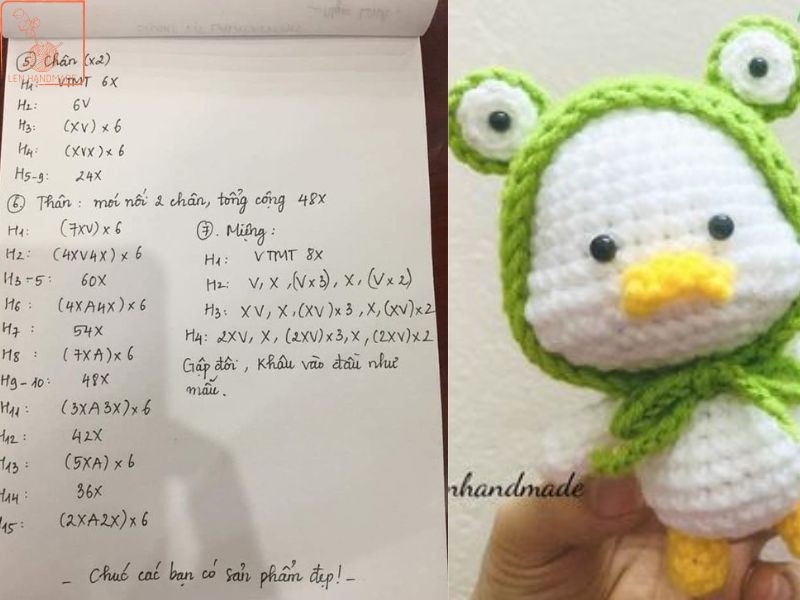 LEN HANDMADE
⑤ Chân (x2)
H1: VTMT 6X
H2: 6V
H3: (XV) x 6
H4: (XVX) x 6
H5-9: 24X
⑥. Thân: mới nối 2 chân, tổng cộng 48X
H1: (7XV) x 6
H2: (4XV4X) x 6
H3-5: 60X
H6: (4XA4X) x 6
H7: 54X
H8: (7XA) x 6
H9-10: 48X
H11: (3XA3X) x 6
H12: 42X
H13: (5XA) x 6
H14: 36X
H15: (2XA2X) x 6
⑦. Miệng:
H1: VTMT 8X
H2: V, X, (V x 3), X, (V x 2)
H3: XV, X, (XV) x 3, X, (XV) x 2
H4: 2XV, X, (2XV) x 3, X, (2XV) x 2
Gập đôi, khâu vào đầu như
mẫu.
_ Chúc các bạn có sản phẩm đẹp! _
nhandmade